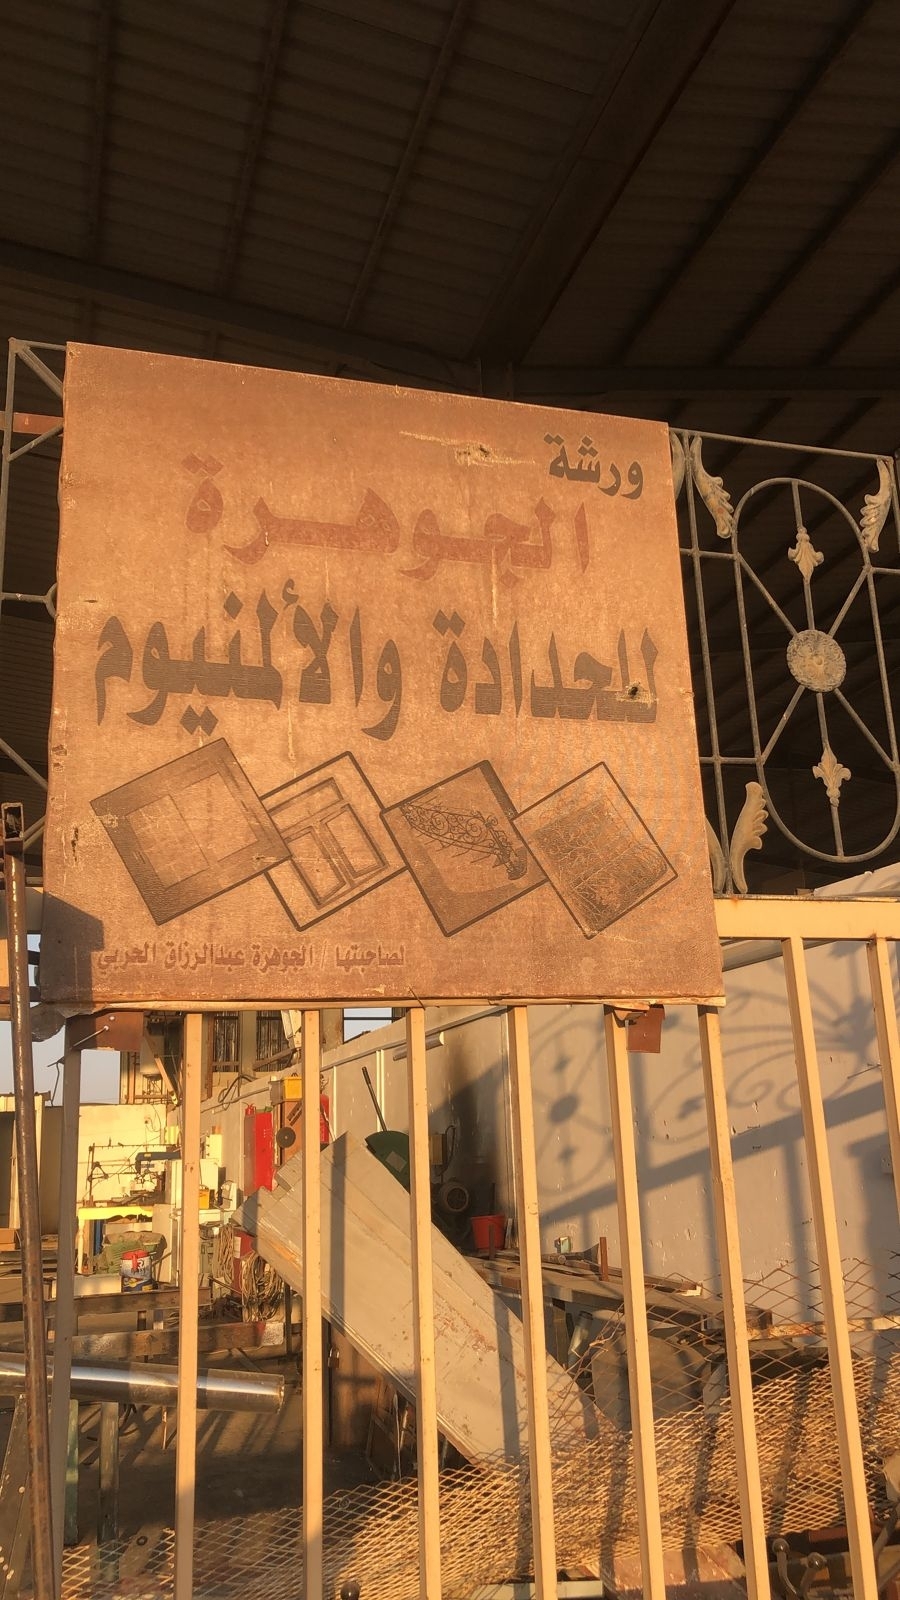 ورشة
الجوهرة
للحدادة والألمنيوم
لصاحبتها / الجوهرة عبدالرزاق الحربي